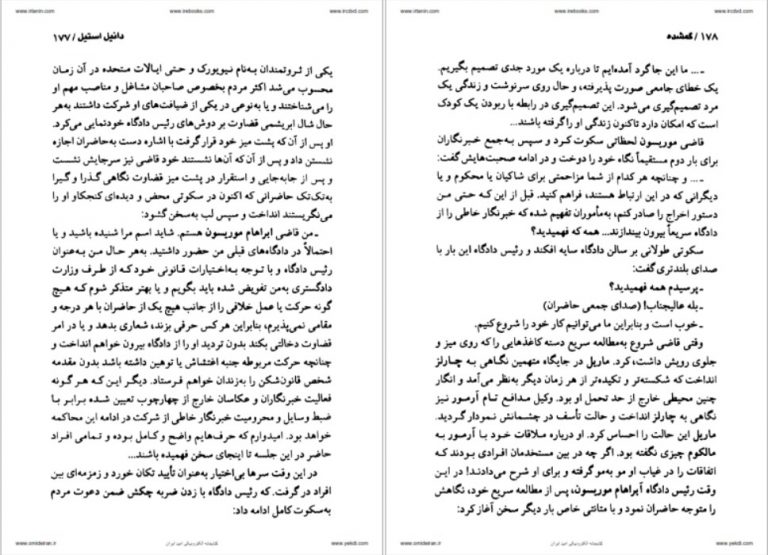 www.irtanin.com
www.irebooks.com
www.ircdvd.com
دانیل استیل / ۱۷۷
یکی از ثروتمندان به‌نام نیویورک و حتی ایالات متحده در آن زمان
محسوب می‌شد اکثر مردم بخصوص صاحبان مشاغل و مناصب مهم او
را می‌شناختند و یا به‌نوعی در یکی از ضیافت‌های او شرکت داشتند به‌هر
حال شال ابریشمی قضاوت بر دوش‌های رئیس دادگاه خودنمایی می‌کرد.
او پس از آن که پشت میز خود قرار گرفت با اشاره دست به‌حاضران اجازه
نشستن داد و پس از آن که آن‌ها نشستند خود قاضی نیز سرجایش نشست
و پس از جابه‌جایی و استقرار در پشت میز قضاوت نگاهی گذرا و گیرا
به‌تک‌تک حاضرانی که اکنون در سکوتی محض و دیده‌ای کنجکاو او را
می‌نگریستند انداخت و سپس لب به‌سخن گشود:
ـ من قاضی ابراهام موریسون هستم. شاید اسم مرا شنیده باشید و یا
احتمالاً در دادگاه‌های قبلی من حضور داشتید. به‌هر حال من به‌عنوان
رئیس دادگاه و با توجه به‌اختیارات قانونی خود که از طرف وزارت
دادگستری به‌من تفویض شده باید بگویم و یا بهتر متذکر شوم که هیچ
گونه حرکت یا عمل خلافی را از جانب هیچ یک از حاضران با هر درجه و
مقامی نمی‌پذیرم، بنابراین هر کس حرفی بزند، شعاری بدهد و یا در امر
قضاوت دخالتی بکند بدون تردید او را از دادگاه بیرون خواهم انداخت و
چنانچه حرکت مربوطه جنبه اغتشاش یا توهین داشته باشد بدون مقدمه
شخص قانون‌شکن را به‌زندان خواهم فرستاد. دیگر این که هرگونه
فعالیت خبرنگاران و عکاسان خارج از چهارچوب تعیین شده برابر با
ضبط وسایل و محرومیت خبرنگار خاطی از شرکت در ادامه این محاکمه
خواهد بود. امیدوارم که حرف‌هایم واضح و کامل بوده و تمامی افراد
حاضر در این جلسه تا اینجای سخن فهمیده باشند...
در این وقت سرها بی‌اختیار به‌عنوان تأیید تکان خورد و زمزمه‌ای بین
افراد در گرفت. که رئیس دادگاه با زدن ضربه چکش ضمن دعوت مردم
به‌سکوت کامل ادامه داد:
www.omideiran.ir
کتابخانه الکترونیکی امید ایران
www.yekdl.com
www.irtanin.com
www.irebooks.com
www.ircdvd.com
۱۷۸ / گمشده
ـ ... ما این جا گرد آمده‌ایم تا درباره یک مورد جدی تصمیم بگیریم.
یک خطای جامعی صورت پذیرفته، و حال روی سرنوشت و زندگی یک
مرد تصمیم‌گیری می‌شود. این تصمیم‌گیری در رابطه با ربودن یک کودک
است که امکان دارد تاکنون زندگی او را گرفته باشند...
قاضی موریسون لحظاتی سکوت کرد و سپس به‌جمع خبرنگاران
برای بار دوم مستقیماً نگاه خود را دوخت و در ادامه صحبت‌هایش گفت:
ـ ... و چنانچه هر کدام از شما مزاحمتی برای شاکیان یا محکوم و یا
دیگرانی که در این ارتباط هستند، فراهم کنید. قبل از این که حتی من
دستور اخراج را صادر کنم، به‌ماموران تفهیم شده که خبرنگار خاطی را از
دادگاه سریعاً بیرون بیندازند... همه که فهمیدید؟
سکوتی طولانی بر سالن دادگاه سایه افکند و رئیس دادگاه این بار با
صدای بلندتری گفت:
ـ پرسیدم همه فهمیدید؟
ـ بله عالیجناب! (صدای جمعی حاضران)
ـ خوب است و بنابراین ما می‌توانیم کار خود را شروع کنیم.
وقتی قاضی شروع به‌مطالعه سریع دسته کاغذهایی را که روی میز و
جلوی رویش داشت، کرد. ماریل در جایگاه متهمین نگاهی به چارلز
انداخت که شکسته‌تر و تکیده‌تر از هر زمان دیگر به‌نظر می‌آمد و انگار
چنین محیطی خارج از حد تحمل او بود. وکیل مدافع تام آرمور نیز
نگاهی به چارلز انداخت و حالت تأسف در چشمانش نمودار گردید.
ماریل این حالت را احساس کرد. او درباره ملاقات خود با آرمور به
مالکوم چیزی نگفته بود. اگر چه در بین مستخدمان افرادی بودند که
اتفاقات را در غیاب او مو به‌مو گرفته و برای او شرح می‌دادند! در این
وقت رئیس دادگاه آبراهام موریسون، پس از مطالعه سریع خود، نگاهش
را متوجه حاضران نمود و با متانتی خاص بار دیگر سخن آغاز کرد:
www.omideiran.ir
کتابخانه الکترونیکی امید ایران
www.yekdl.com